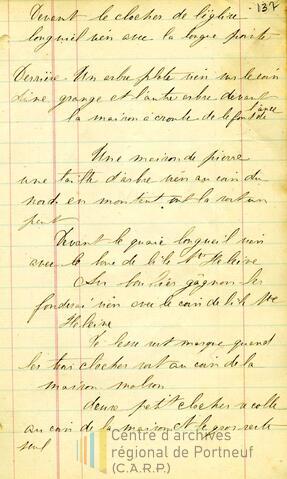 137
Devant le clocher de l'église
longueil vien avec la longue pointe
Derrière Un arbre plate vien sur le coin
d'une grange et l'autre arbre devant
la maison a croute de le fond de
l'ance
Une maison de pierre
une talle d'arbre vien au coin du
nord en montent et la
peut
Devant le quaie longueil vien
avec le boue de l'ile Ste Heleine
les
vien avec le coin de l'ile Ste
Heleine
marque quand
les trois clocher sont au coin de la
maison molson
deux petit clocher a colle
au coin de la maison et le gros reste
seul
Centre d'archives
régional de Portneuf
(C.A.R.P.)